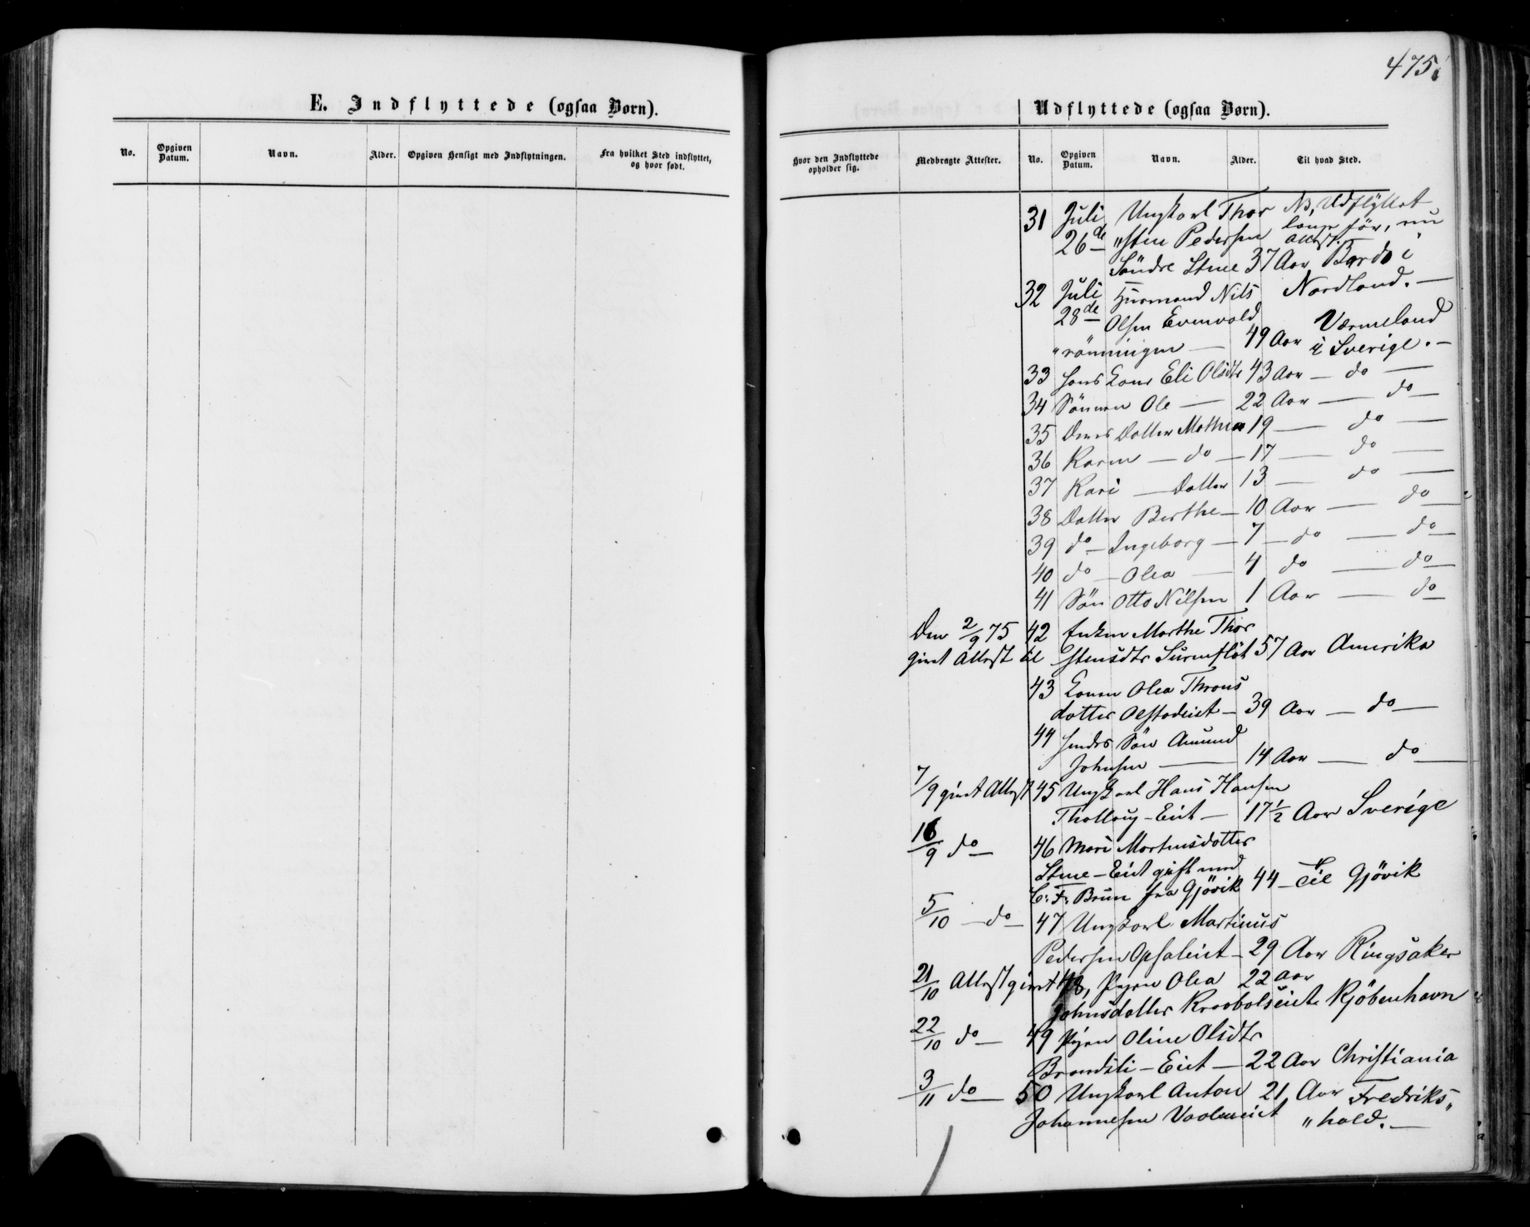 475
E. Indflyttede (ogsaa Børn).
No.
Opgiven Datum.
Navn.
Alder.
Opgiven Hensigt med Indflytningen.
Fra hvilket Sted indflyttet, og hvor født.
Udflyttede (ogsaa Børn).
Hvor den Indflyttede opholder sig.
Medbragte Attester.
No.
Opgiven Datum.
Navn.
Alder.
Til hvad Sted.
31 Juli Ungkarl Thor Nb, Udflyttet
26de "sten Pedersen længe før, nu
Attest.
Søndre Stme 37 Aar Bardo i
32 Juli Huusmand Nils Nordland. —
28de Olsen Evenvold Værmeland
"rønningen — 49 Aar i Sverige. —
33 hans Kone Eli Olsdtr 43 Aar — do —
34 Sønnen Ole — 22 Aar — do —
35 Deres Datter Mathea 19 — do —
36 Karen — do — 17 — do —
37 Kari — Datter 13 — do —
38 Datter Berthe — 10 Aar — do —
39 do — Ingeborg — 7 — do — do —
40 do — Olea — 4 do — do —
41 Søn Otto Nilsen 1 Aar — do —
Den 2/9 75 42 Enken Marthe Thor
givet Attest til stensdtr 57 Aar Amerika
43 Konen Olea Throns
datter — 39 Aar — do —
44 hendes Søn Amund
Johnsen — 14 Aar — do —
7/9 givet Attest 45 Ungkarl Hans Hansen
Thollaug - Eiet — 17 1/2 Aar Sverige
16/9 do — 46 Mari Martinsdatter
Stme - Eiet gift med
C. Fr Brun fra Gjøvik 44 — til Gjøvik
5/10 — do — 47 Ungkarl Martinus
Pedersen Opsaleiet — 29 Aar Ringsaker
21/10 Attest givet 48, Pigen Olea 22 Aar
Johnsdatter Kravbolseiet Kjöbenhavn
22/10 do — 49 Pigen Oline Olsdtr
Brandsli - Eiet — 22 Aar Christiania
3/11 do — 50 Ungkarl Anton 21 Aar Fredriks"
Johannesen "hald. —